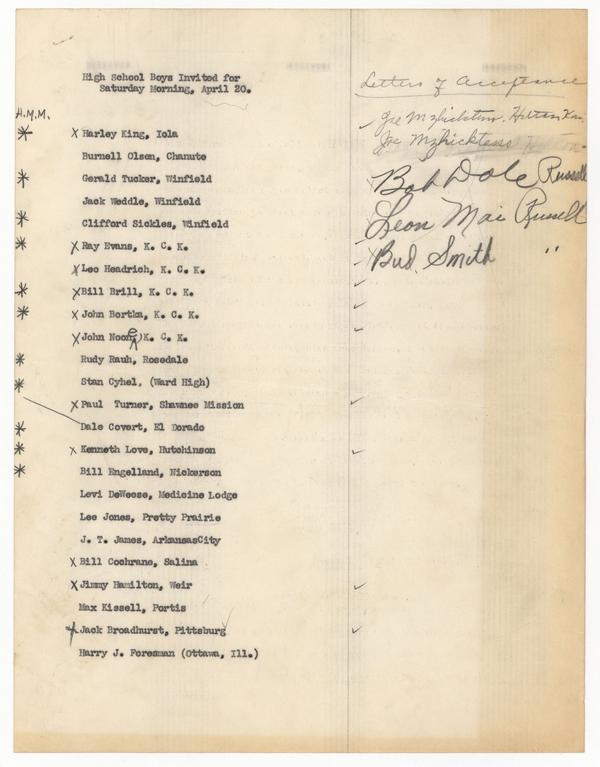 High School Boys Invited for
Saturday Morning, April 20.
Letters of Acceptance
H.M.M.
* X Harley King, Iola
Burnell Olson, Chanute
* Gerald Tucker, Winfield
Jack Weddle, Winfield
* Clifford Sickles, Winfield
* X Ray Evans, K. C. K.
X Leo Headrich, K. C. K.
* X Bill Brill, K. C. K. ✓
* X John Bortka, K. C. K. ✓
X John Noone, K. C. K. ✓
* Rudy Rauh, Rosedale
* Stan Cyhel, (Ward High)
X Paul Turner, Shawnee Mission ✓
* Dale Covert, El Dorado
* X Kenneth Love, Hutchinson ✓
* Bill Engelland, Nickerson
Levi DeWeese, Medicine Lodge
Lee Jones, Pretty Prairie
J. T. James, ArkansasCity
X Bill Cochrane, Salina
X Jimmy Hamilton, Weir ✓
Max Kissell, Portis
X Jack Broadhurst, Pittsburg ✓
Harry J. Foresman (Ottawa, Ill.)
✓ Joe
Joe
Bob Dole Russell
Leon Mai Russell
X Bud Smith "